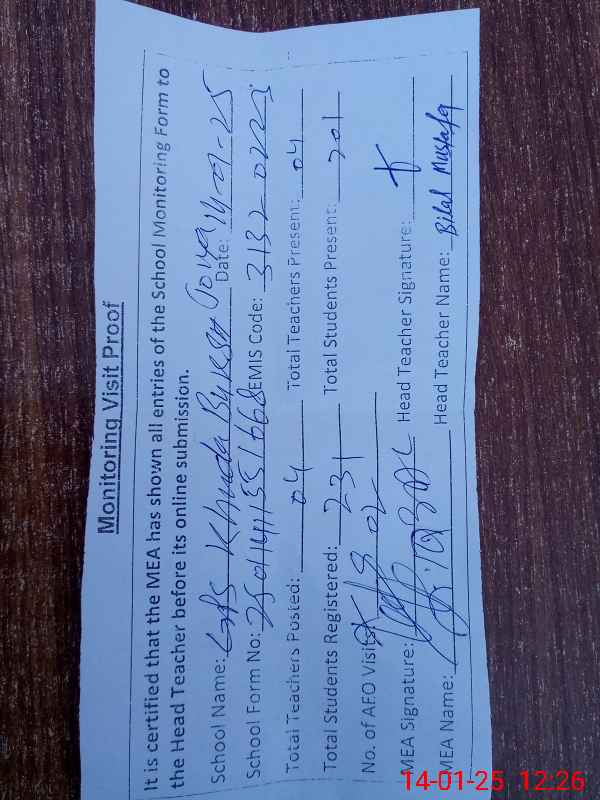 Monitoring Visit Proof
It is certified that the MEA has shown all entries of the School Monitoring Form to
the Head Teacher before its online submission.
School Name: GPS Khuda Buksh Date:
School Form No: EMIS Code: 31320225
Total Teachers Posted: 04 Total Teachers Present: 04
Total Students Registered: 231 Total Students Present: 201
No. of AEO Visits: 02
MEA Signature: Head Teacher Signature:
MEA Name: Head Teacher Name: Bilal Mustafa
14-01-25 12:26